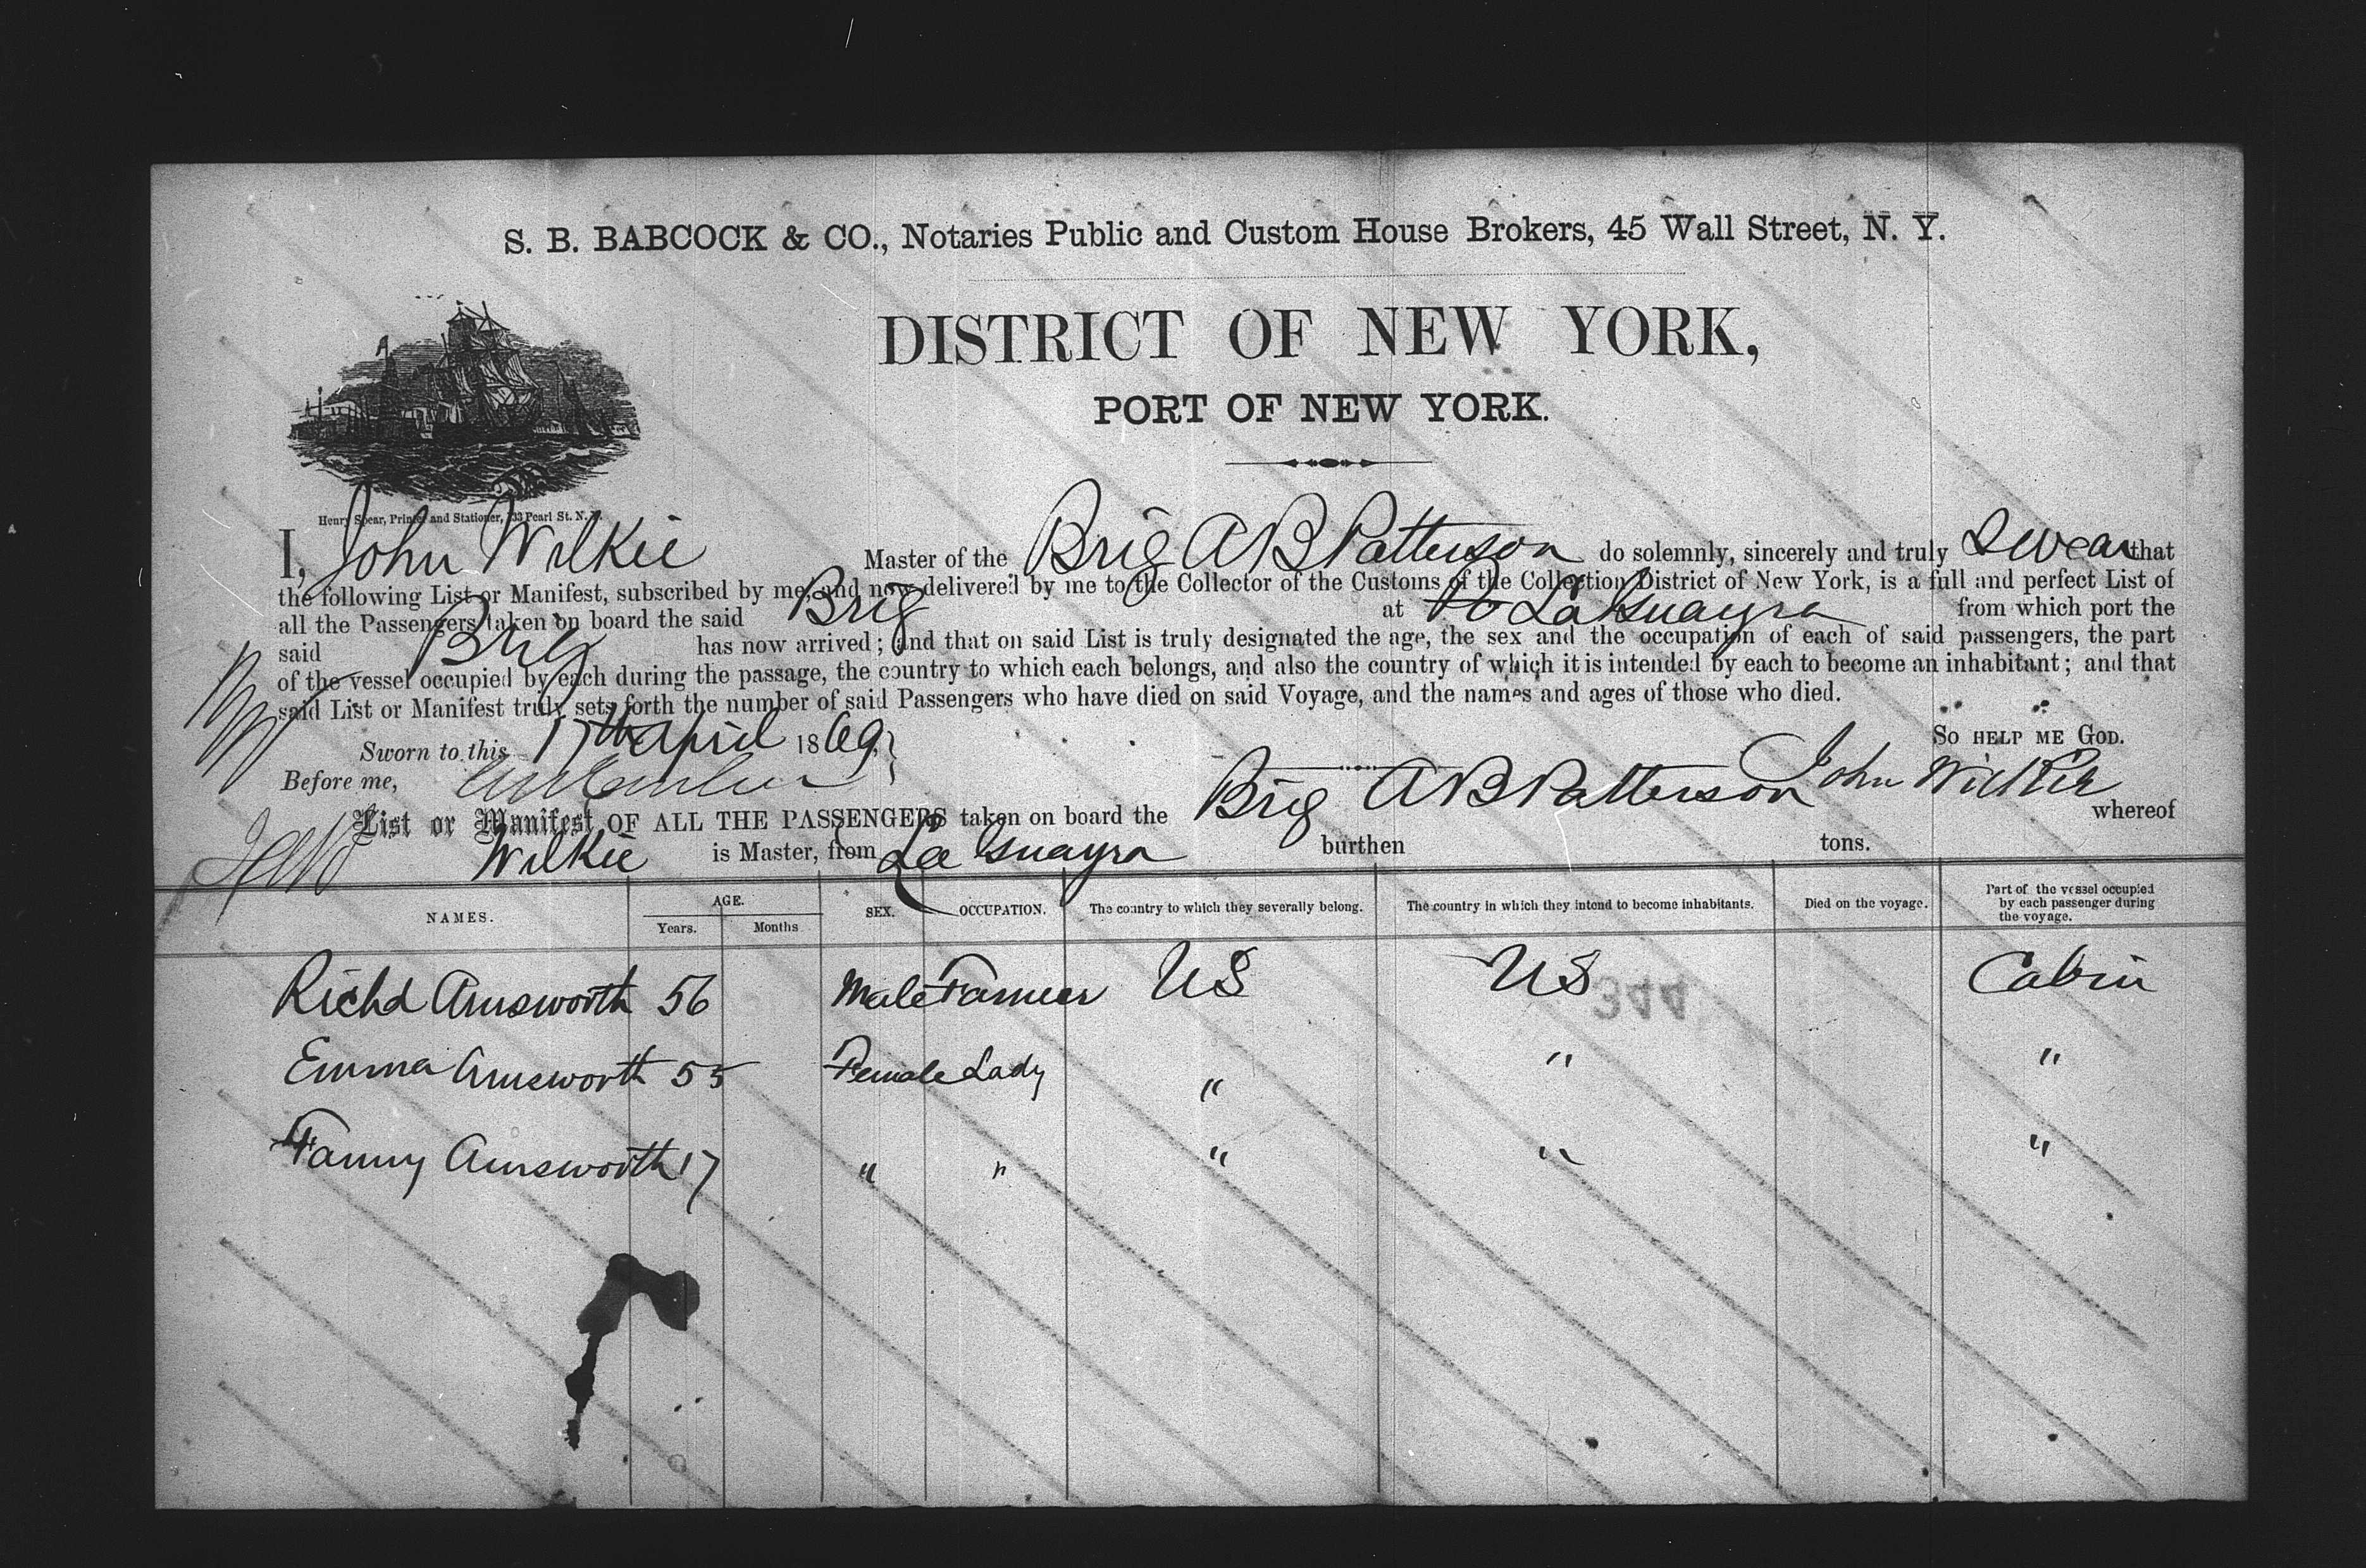 S. B. BABCOCK & CO., Notaries Public and Custom House Brokers, 45 Wall Street, N. Y.
DISTRICT OF NEW YORK,
PORT OF NEW YORK.
Henry Spear, Printer and Stationer, 133 Pearl St. N. Y.
I, John Wilkie Master of the Brig A B Patterson do solemnly, sincerely and truly Swear that
the following List or Manifest, subscribed by me, and now delivered by me to the Collector of the Customs of the Collection District of New York, is a full and perfect List of
all the Passengers taken on board the said Brig at La Guayra from which port the
said Brig has now arrived; and that on said List is truly designated the age, the sex and the occupation of each of said passengers, the part
of the vessel occupied by each during the passage, the country to which each belongs, and also the country of which it is intended by each to become an inhabitant; and that
said List or Manifest truly sets forth the number of said Passengers who have died on said Voyage, and the names and ages of those who died.
Sworn to this 17th April 1869 So HELP ME GOD.
Before me, John Wilkie
List or Manifest OF ALL THE PASSENGERS taken on board the Brig A B Patterson whereof
Wilkie is Master, from La Guayra burthen tons.
NAMES. AGE. Years. Months SEX. OCCUPATION. The country to which they severally belong. The country in which they intend to become inhabitants. Died on the voyage. Part of the vessel occupied by each passenger during the voyage.
Richd Ainsworth 56 Male Farmer US US Cabin
344
Emma Ainsworth 55 Female Lady " " "
Fanny Ainsworth 17 " " " " "